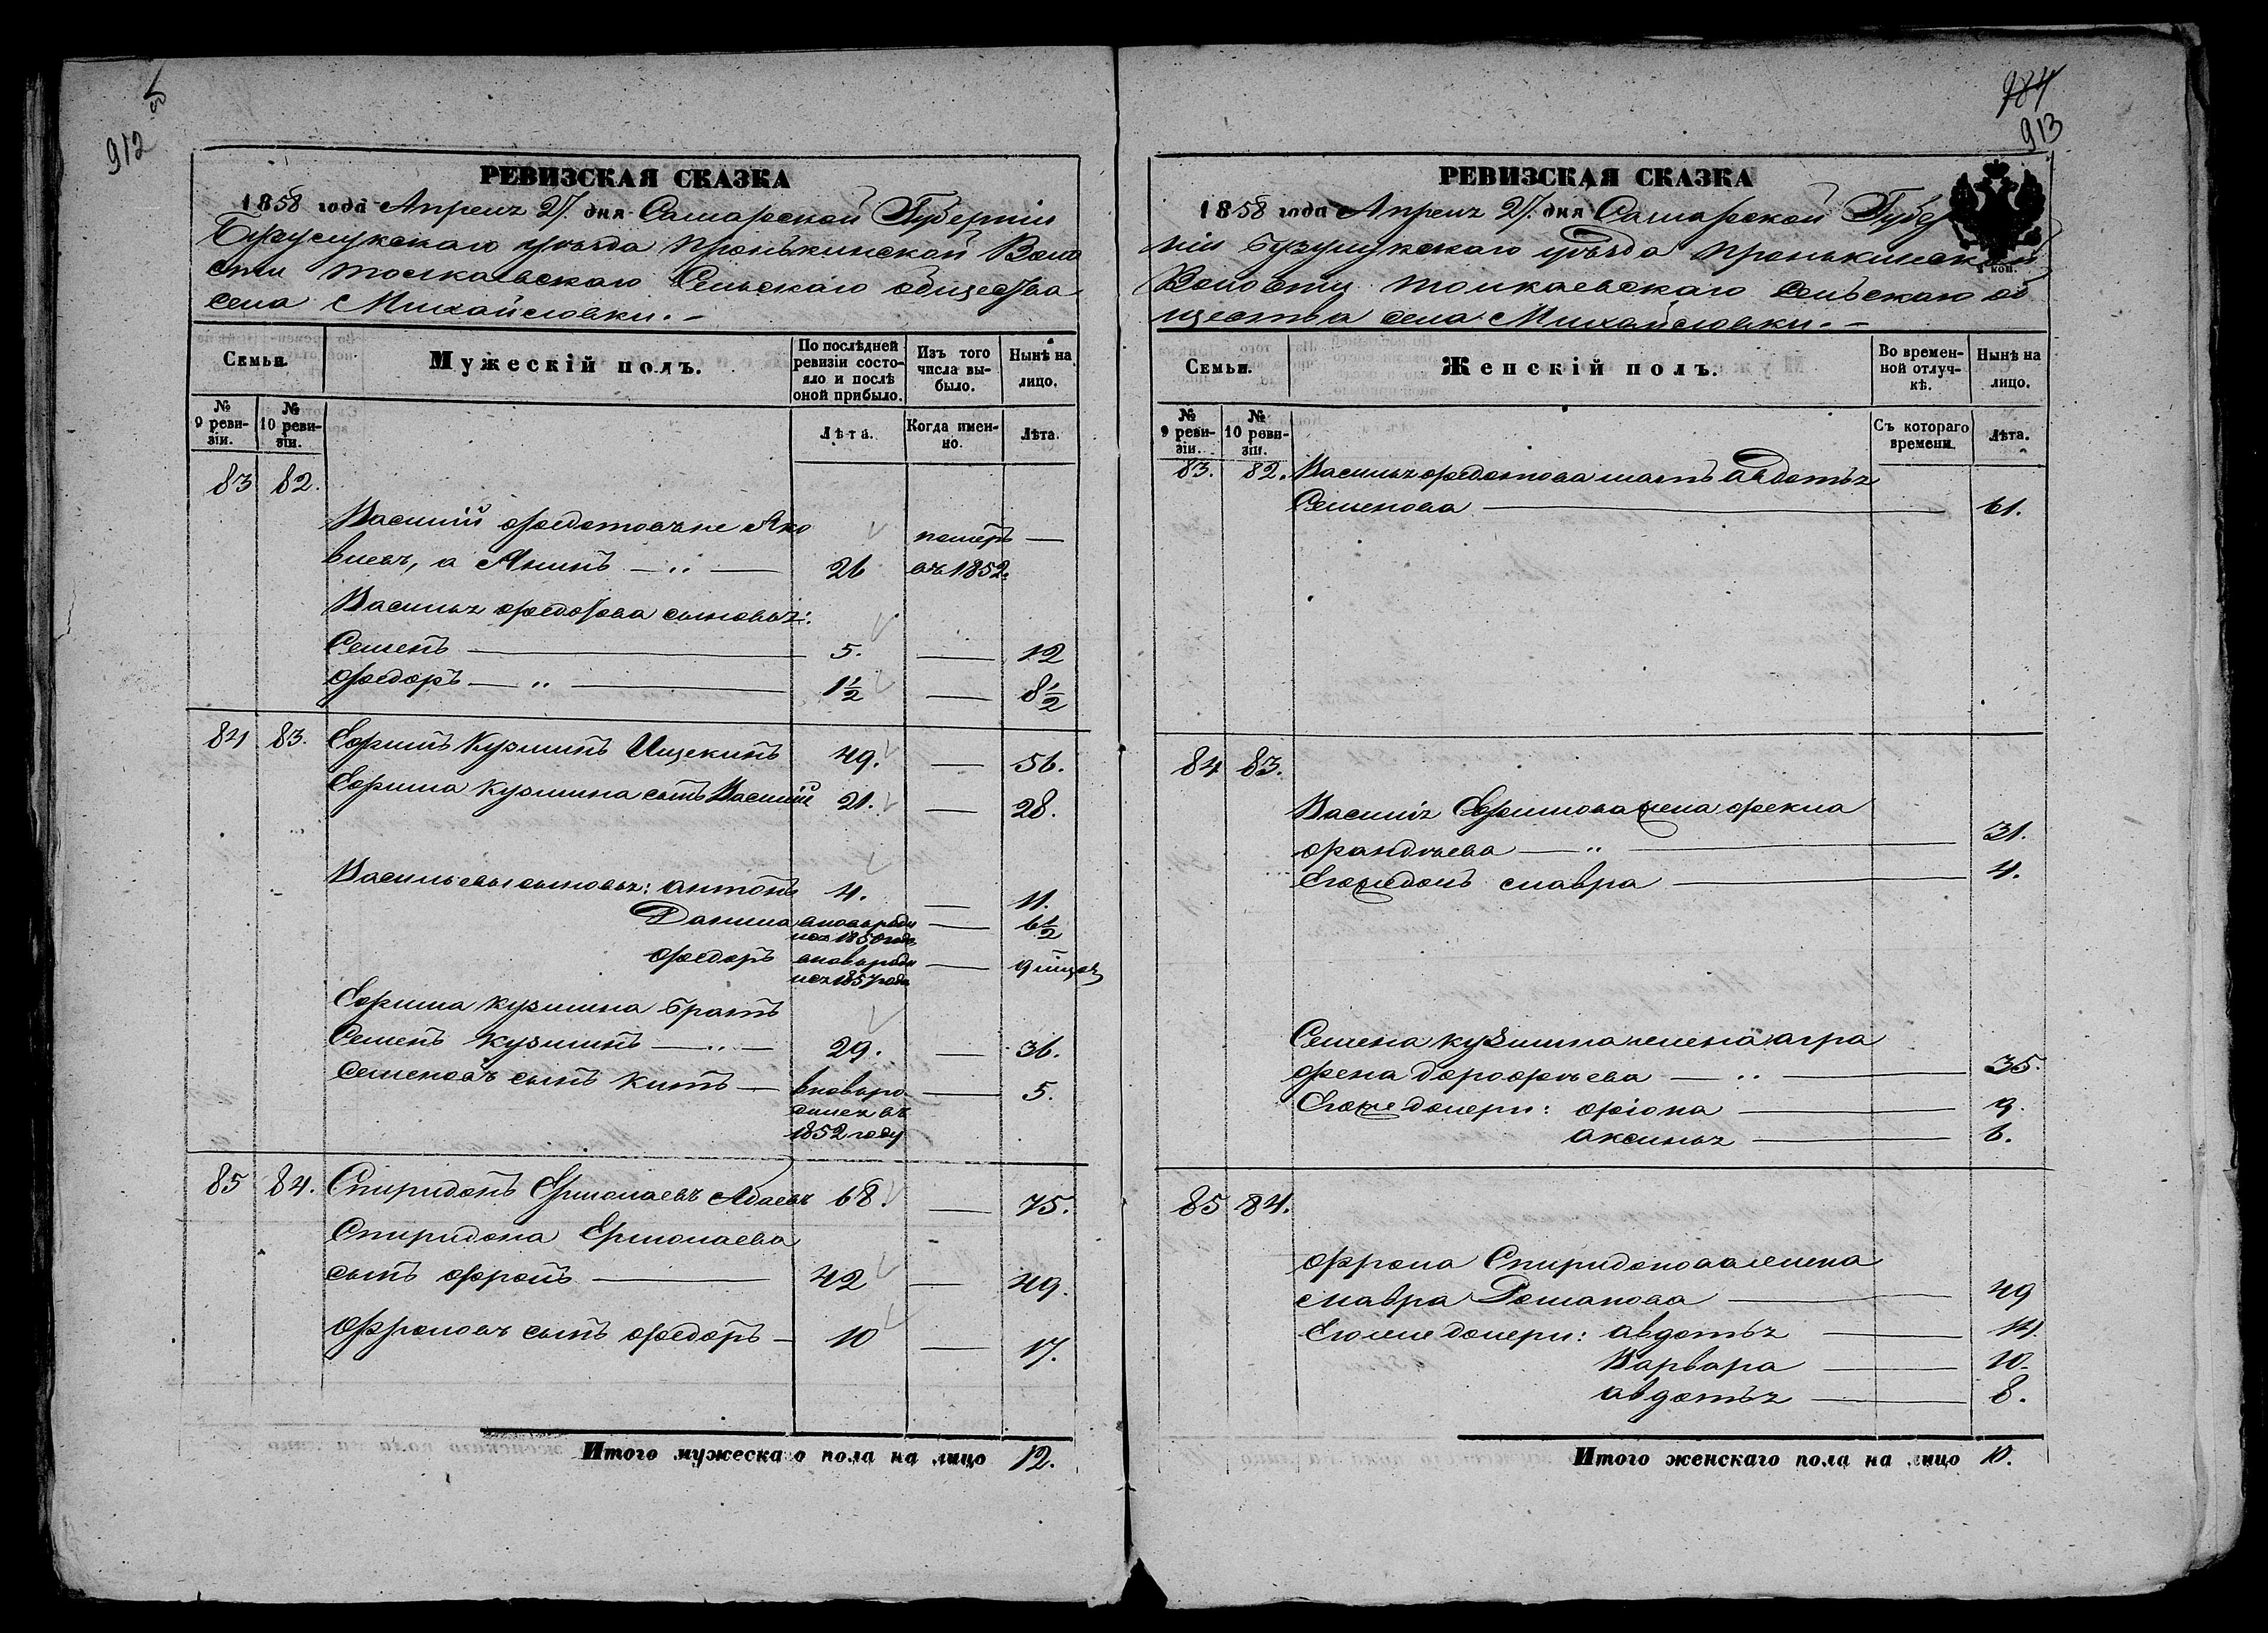 912
РЕВИЗСКАЯ СКАЗКА
1858 года Апреля 27. дня Самарской Губерніи
Бузулукскаго уѣзда Пронькинской Воло
сти Толкаевскаго Сельскаго общества
села Михайловки. –
Семьи.
Мужескій полъ.
По послѣдней ревизіи состояло и послѣ оной прибыло.
Изъ того числа выбыло.
Нынѣ на лицо.
№ 9 ревизіи.
№ 10 ревизіи.
Лѣта.
Когда именно.
Лѣта.
83 82.
Василій Федотовъ не Яко
влевъ, а Янинъ — 26 померъ въ 1852.
Василья Федотова сыновья:
Семенъ — 5. — 12
Федоръ — 1½ — 8½
84 83. Ефимъ Кузминъ Ищекинъ 49. — 56.
Ефима Кузмина сынъ Василій 21. — 28.
Васильевы сыновья: Антонъ 4. — 11.
Данила вновь роди лся 1850 года — 6½
Федоръ вновь роди лся 1857 года — 9 мѣцовъ
Ефима Кузмина братъ
Семенъ Кузминъ — 29. — 36.
Семеновъ сынъ Китъ — вновь ро дился въ 1852 году — 5.
85 84. Спиридонъ Ермолаевъ Адаевъ 68. — 75.
Спиридона Ермолаева
сынъ Фролъ — 42 — 49.
Фроловъ сынъ Федоръ — 10 — 17.
Итого мужескаго пола на лицо 12.
984
913
РЕВИЗСКАЯ СКАЗКА
1858 года Апреля 27. дня Самарской Губер
ніи Бузулукскаго уѣзда Пронькинской
Волости Толкаевскаго Сельскаго об
щества села Михайловки. –
Семьи.
Женскій полъ.
Во временной отлучкѣ.
Нынѣ на лицо.
№ 9 ревизіи.
№ 10 ревизіи.
Съ котораго времени.
Лѣта.
83. 82. Василья Федотова мать Авдотья
Семенова — 61.
84 83.
Василія Ефимова жена Фекла
Фандѣева — 31.
Его же дочь Мавра — 4.
Семена Кузмина жена Агра
фена Дорофѣева — 35.
Его же дочери: Фіона — 9.
Аксинья — 6.
85 84.
Фрола Спиридонова жена
Мавра Романова — 49
Его же дочери: Авдотья — 14.
Варвара — 10.
Авдотья — 8.
Итого женскаго пола на лицо 10.